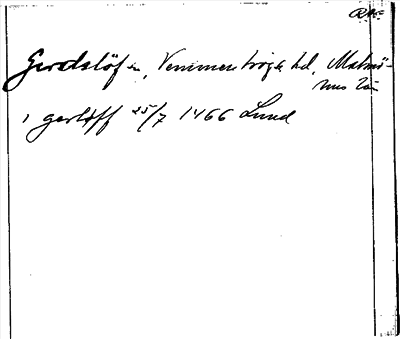 Gerdslöfsn, Vemmenhögs hd, Malmö-
hus län
i gerløff 25/7 1466 Lund